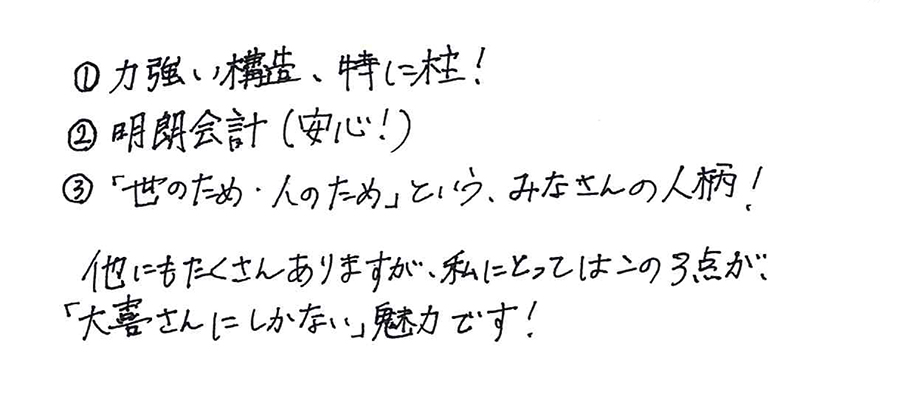 ①力強い構造、特に柱!
②明朗会計(安心!)
③「世のため・人のため」という、みなさんの人柄!
他にもたくさんありますが、私にとってはこの3点が、
「大喜さんにしかない」魅力です!